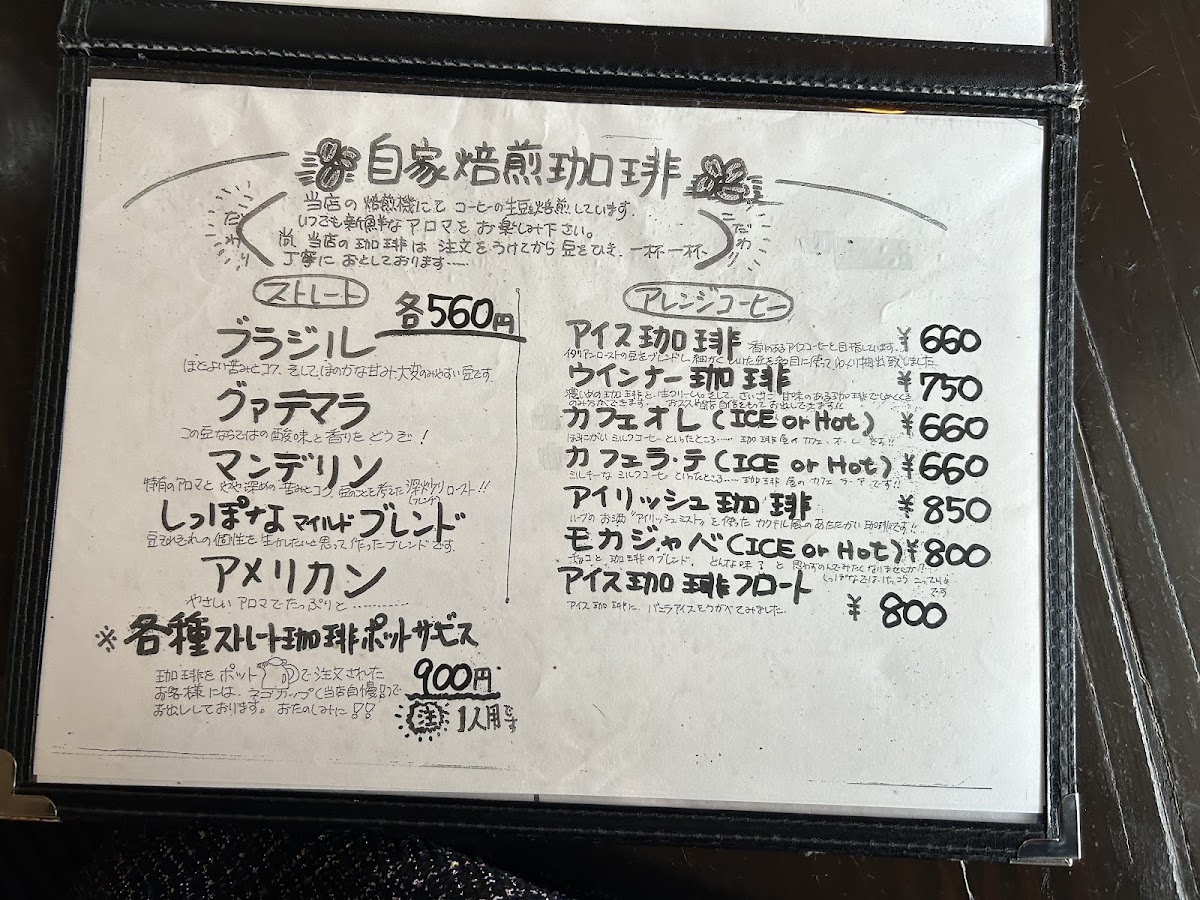 自家焙煎珈琲
こだわり
当店の焙煎機にて コーヒーの生豆を焙煎しています.
いつでも新鮮なアロマをお楽しみ下さい。
尚 当店の珈琲は注文をうけてから豆をひき. 一杯一杯
丁寧におとしております……
こだわり
ストレート
各560円
ブラジル
ほどよい苦みとコク、そして、ほのかな甘み.大変のみやすい豆です.
グァテマラ
この豆ならではの酸味と香りをどうぞ!
マンデリン
特有のアロマとやや深めの苦みとコク、豆のことを考えた深炒りロースト!!
(フレンチ)
しっぽなマイルドブレンド
豆それぞれの個性を生かしたいと思って作ったブレンドです.
アメリカン
やさしいアロマでたっぷりと…………
※各種ストレート珈琲ポットサービス
珈琲をポットで注文された
お客様には、ネコカップ(当店自慢!!)で
お出ししております。おたのしみに!!
900円
注 1人用です
アレンジコーヒー
アイス珈琲 ¥660
香りあるアイスコーヒーを目指しています.
イタリアンローストの豆をブレンドし細かくひいた豆を多目に使ってゆっくり抽出致しました
ウインナー珈琲 ¥750
濃いめの珈琲と生クリーム。そして、
カフェオレ(ICE or Hot) ¥660
ほろにがいミルクコーヒーといったところ…… 珈琲屋のカフェ・オ・レです!!
カフェラ・テ(ICE or Hot) ¥660
ミルキーなミルクコーヒーといったところ…… 珈琲屋のカフェラ・テです!!
アイリッシュ珈琲 ¥850
ハーブのお酒“アイリッシュミスト”を使ったカクテル風のあたたかい珈琲です!!
モカジャバ(ICE or Hot) ¥800
チョコと珈琲のブレンド. どんな味?と思わずのんでみたくなりませんか!?
しっぽなではけっこうこっている
です
アイス珈琲フロート ¥800
アイス珈琲に、バニラアイスをうかべてみました.